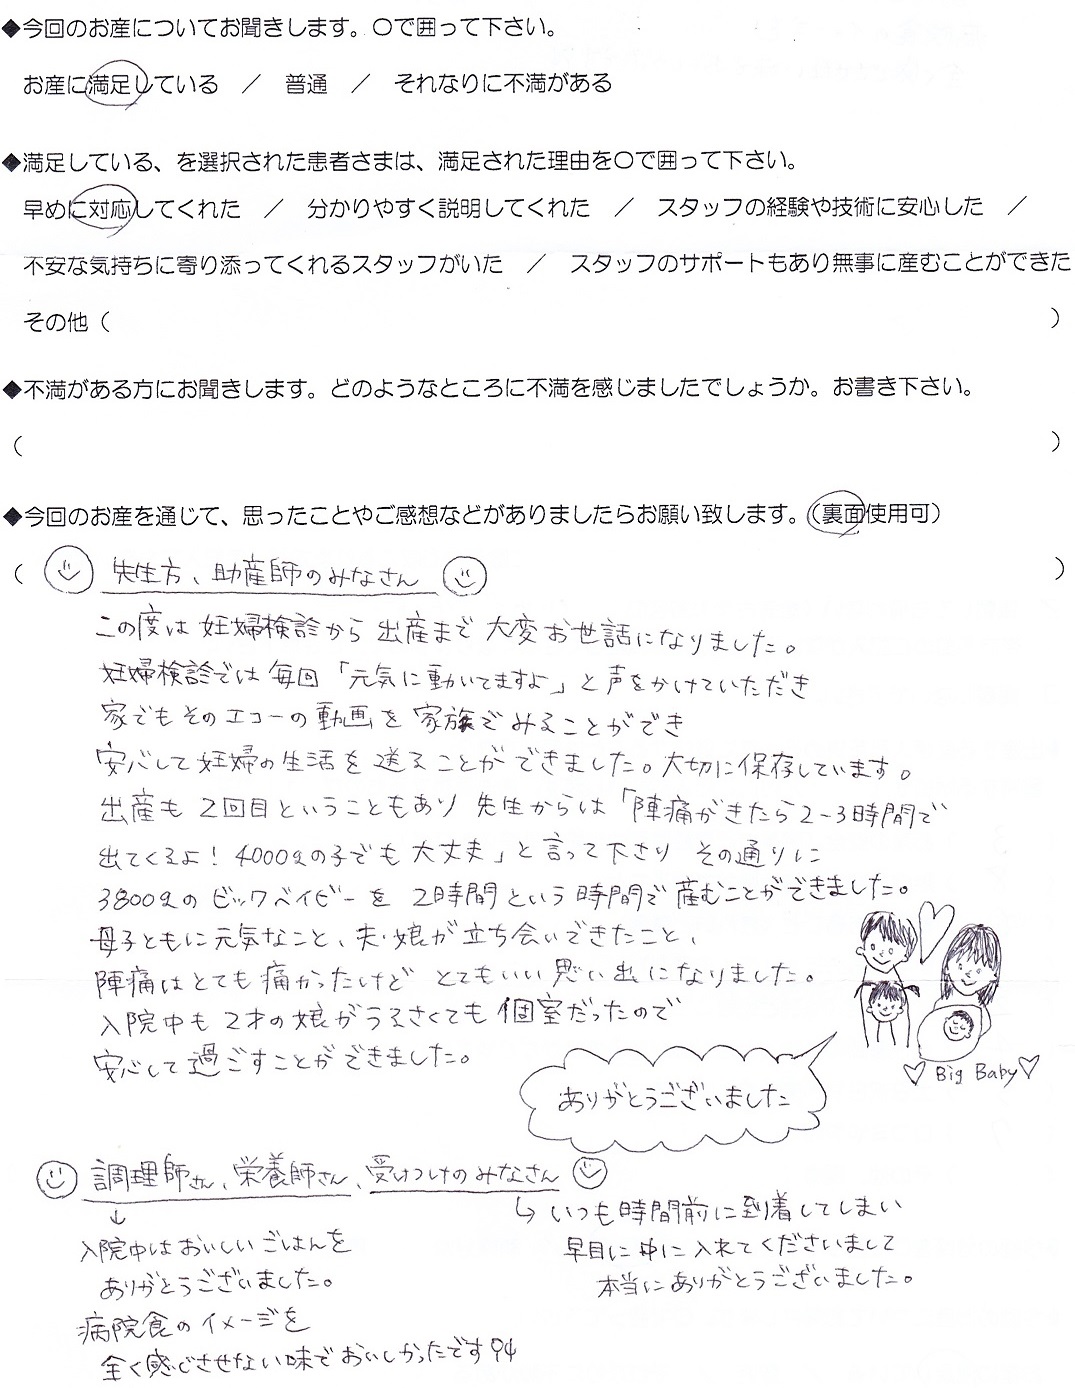 ◆今回のお産についてお聞きします。〇で囲って下さい。
お産に満足している ／ 普通 ／ それなりに不満がある
◆満足している、を選択された患者さまは、満足された理由を〇で囲って下さい。
早めに対応してくれた ／ 分かりやすく説明してくれた ／ スタッフの経験や技術に安心した ／
不安な気持ちに寄り添ってくれるスタッフがいた ／ スタッフのサポートもあり無事に産むことができた
その他（ ）
◆不満がある方にお聞きします。どのようなところに不満を感じましたでしょうか。お書き下さい。
（ ）
◆今回のお産を通じて、思ったことやご感想などがありましたらお願い致します。（裏面使用可）
（ 先生方、助産師のみなさん ）
この度は妊婦検診から出産まで大変お世話になりました。
妊婦検診では毎回「元気に動いてますよ」と声をかけていただき
家でもそのエコーの動画を家族でみることができ
安心して妊婦の生活を送ることができました。大切に保存しています。
出産も2回目ということもあり先生からは「陣痛がきたら2-3時間で
出てくるよ！4000gの子でも大丈夫」と言って下さりその通りに
3800gのビックベイビーを2時間という時間で産むことができました。
母子ともに元気なこと、夫・娘が立ち会いできたこと、
陣痛はとても痛かったけどとてもいい思い出になりました。
入院中も2才の娘がうるさくても個室だったので
安心して過ごすことができました。
♡Big Baby♡
ありがとうございました
調理師さん、栄養師さん、受けつけのみなさん
↓
入院中はおいしいごはんを
ありがとうございました。
病院食のイメージを
全く感じさせない味でおいしかったです
↳いつも時間前に到着してしまい
早目に中に入れてくださいまして
本当にありがとうございました。